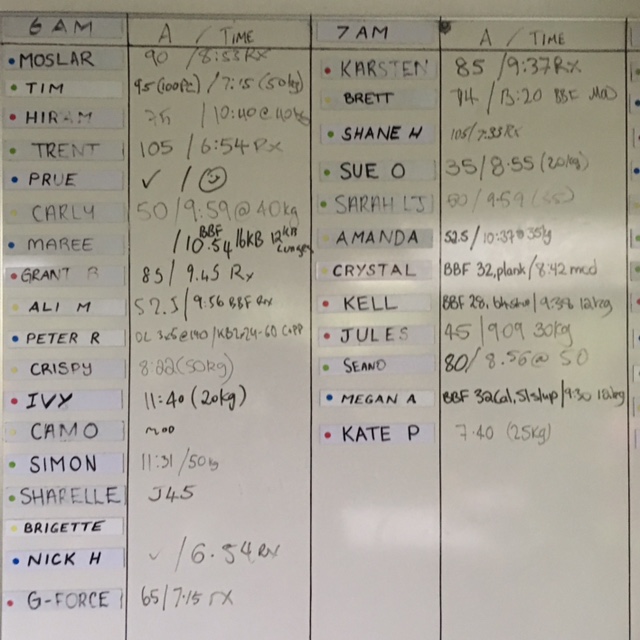 6 AM A / TIME
MOSLAR 90 / 8:53 RX
TIM 95 (100PC) / 7:15 (50kg)
HIRAM 75 / 10:40 @ 40kg
TRENT 105 / 6:54 Rx
PRUE ✓ / ☺
CARLY 50 / 9:59 @ 40kg
MAREE / BBF 10:54 16KB 12KB
GRANT B 85 / 9.45 Rx
ALI M 52.5 / 9:56 BBF Rx
PETER R 3x5@140
CRISPY 8:22 (50kg)
IVY 11:40 (20kg)
CAMO MOD
SIMON 11:31 / 50kg
SHARELLE J45
BRIGETTE
NICK H ✓ / 6.54 RX
G-FORCE 65 / 7.15 rx
7 AM A / TIME
KARSTEN 85 / 9:37 RX
BRETT 74 / 13:20 BBF MOD
SHANE H 105 / 7:33 RX
SUE O 35 / 8:55 (20kg)
SARAH LJ 50 / 9:59 (35)
AMANDA 52.5 / 10:37 @ 35kg
CRYSTAL BBF 32, plank / 8:42 mod
KELL BBF 28, / 9:38 12kg
JULES 45 / 909 30kg
SEANO 80 / 8.56 @ 50
MEGAN A BBF 32 / 9:30
KATE P 7.40 (25kg)